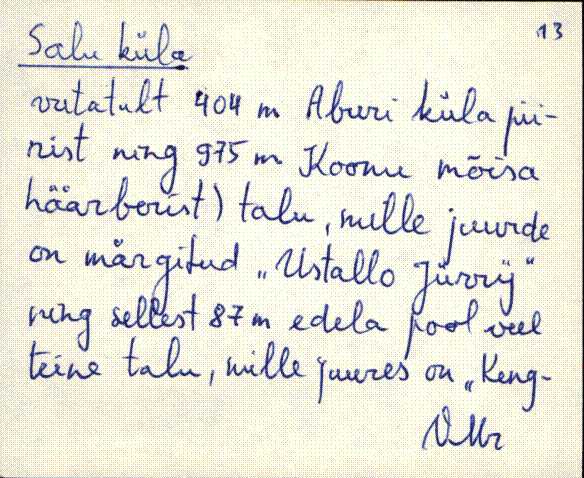 13
Salu küla
vastatult 404 m Aburi küla pii-
rist ning 975 m Koonu mõisa
häärberist) talu, mille juurde
on märgitud „Ustallo Jürry"
ning sellest 87 m edela pool veel
teine talu, mille juures on „Keng-